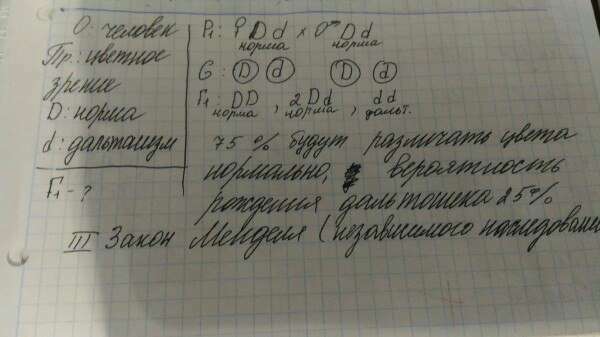 О: человек
Пр: цветное
зрение
D: норма
d: дальтанизм
F₁ - ?
P₁: ♀ Dd × ♂ Dd
норма норма
G: D d D d
F₁: DD, 2Dd, dd
норма норма дальт.
75% будут различать цвета
нормально, вероятность
рождения дальтоника 25%
III Закон Менделя (независимого наследовани